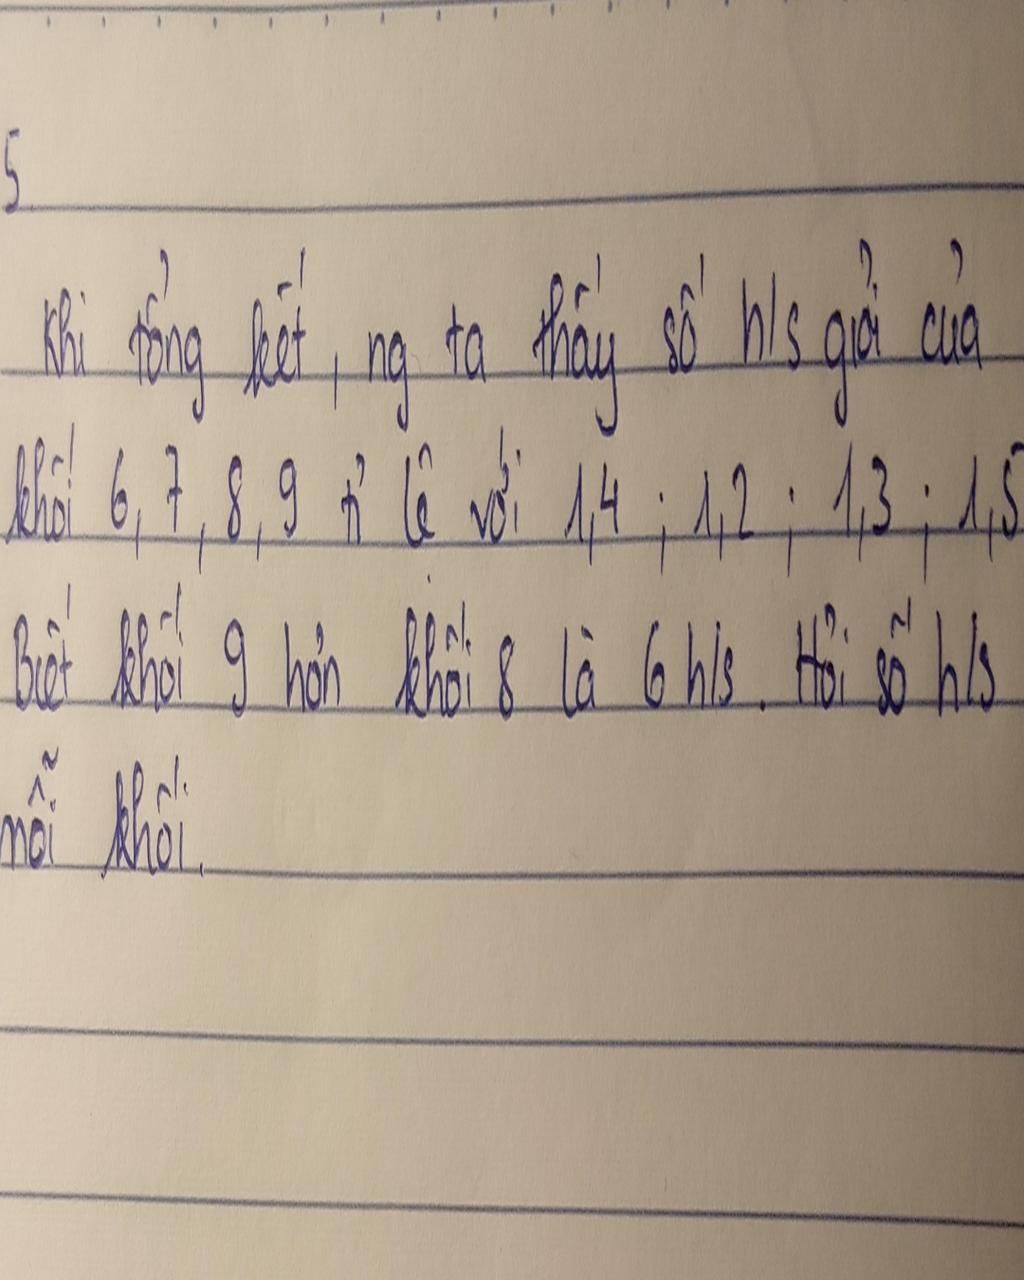 5
Khi tổng kết, ng ta thấy số h/s giỏi của
khối 6, 7, 8, 9 tỉ lê với 1,4 ; 1,2 ; 1,3 ; 1,5
Biết khối 9 hơn khối 8 là 6 h/s. Hỏi số h/s
mỗi khối.